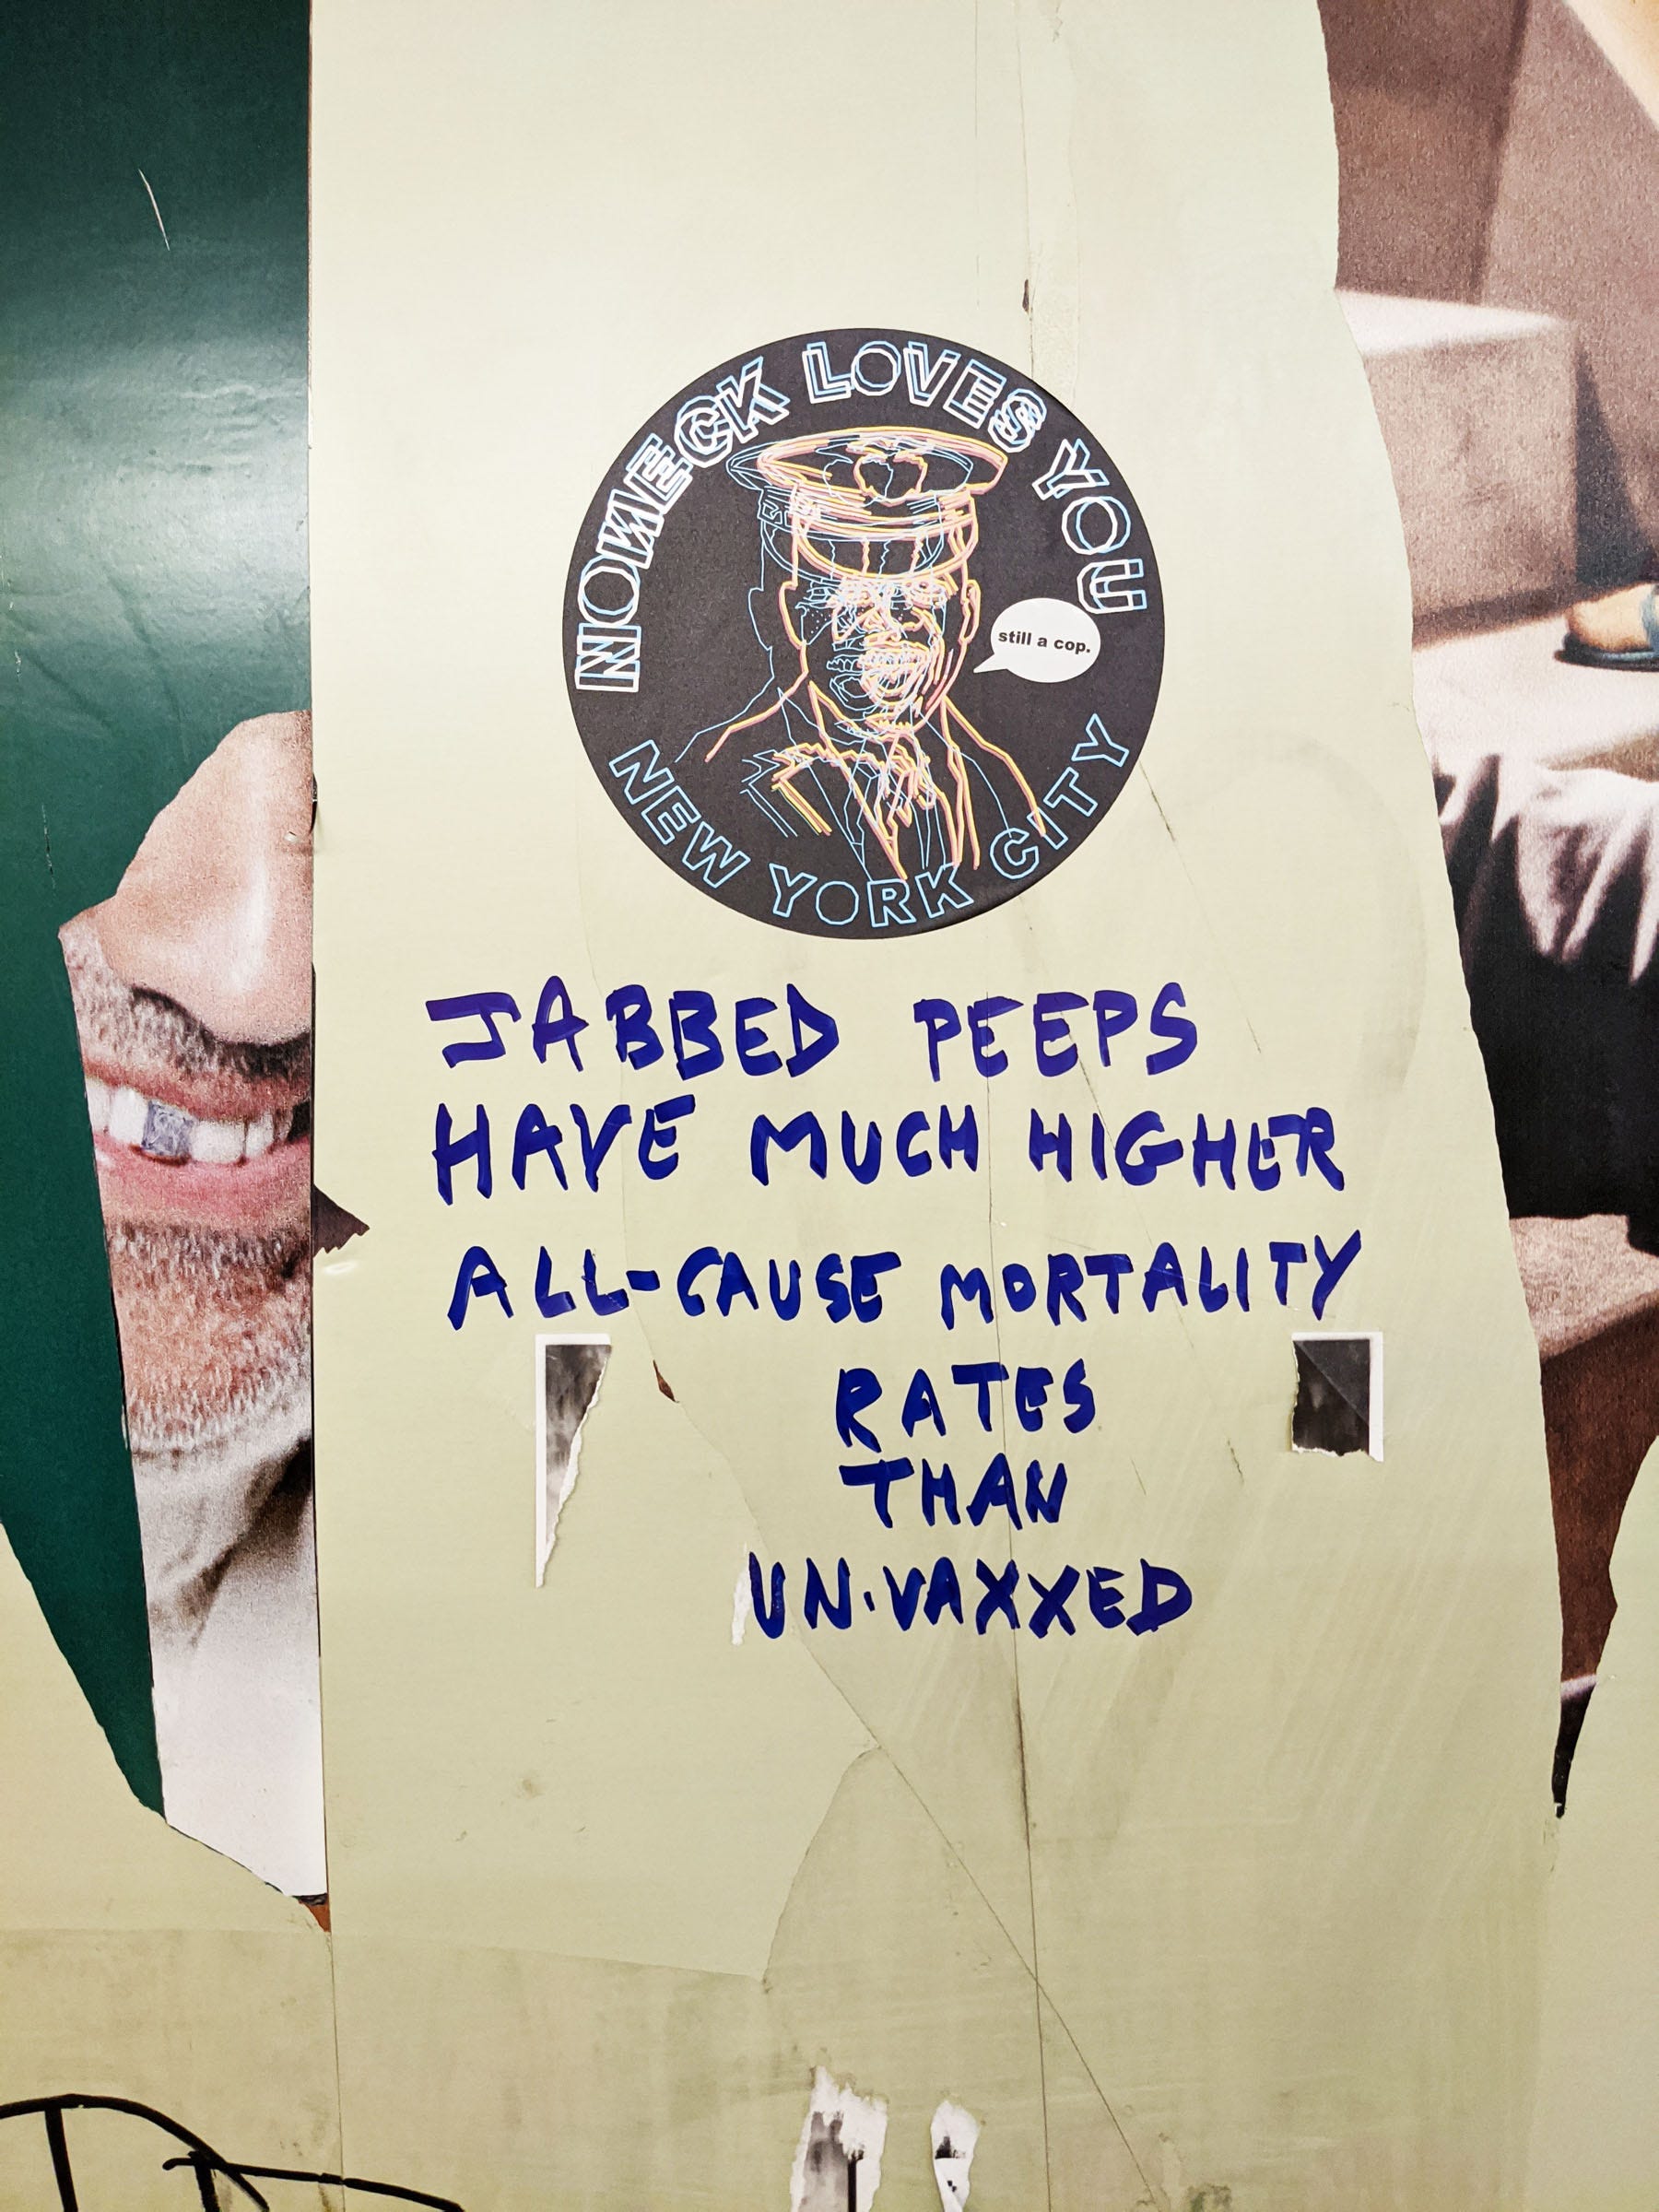 NONECK LOVES YOU
still a cop.
NEW YORK CITY
JABBED PEEPS
HAVE MUCH HIGHER
ALL-CAUSE MORTALITY
RATES
THAN
UN.VAXXED